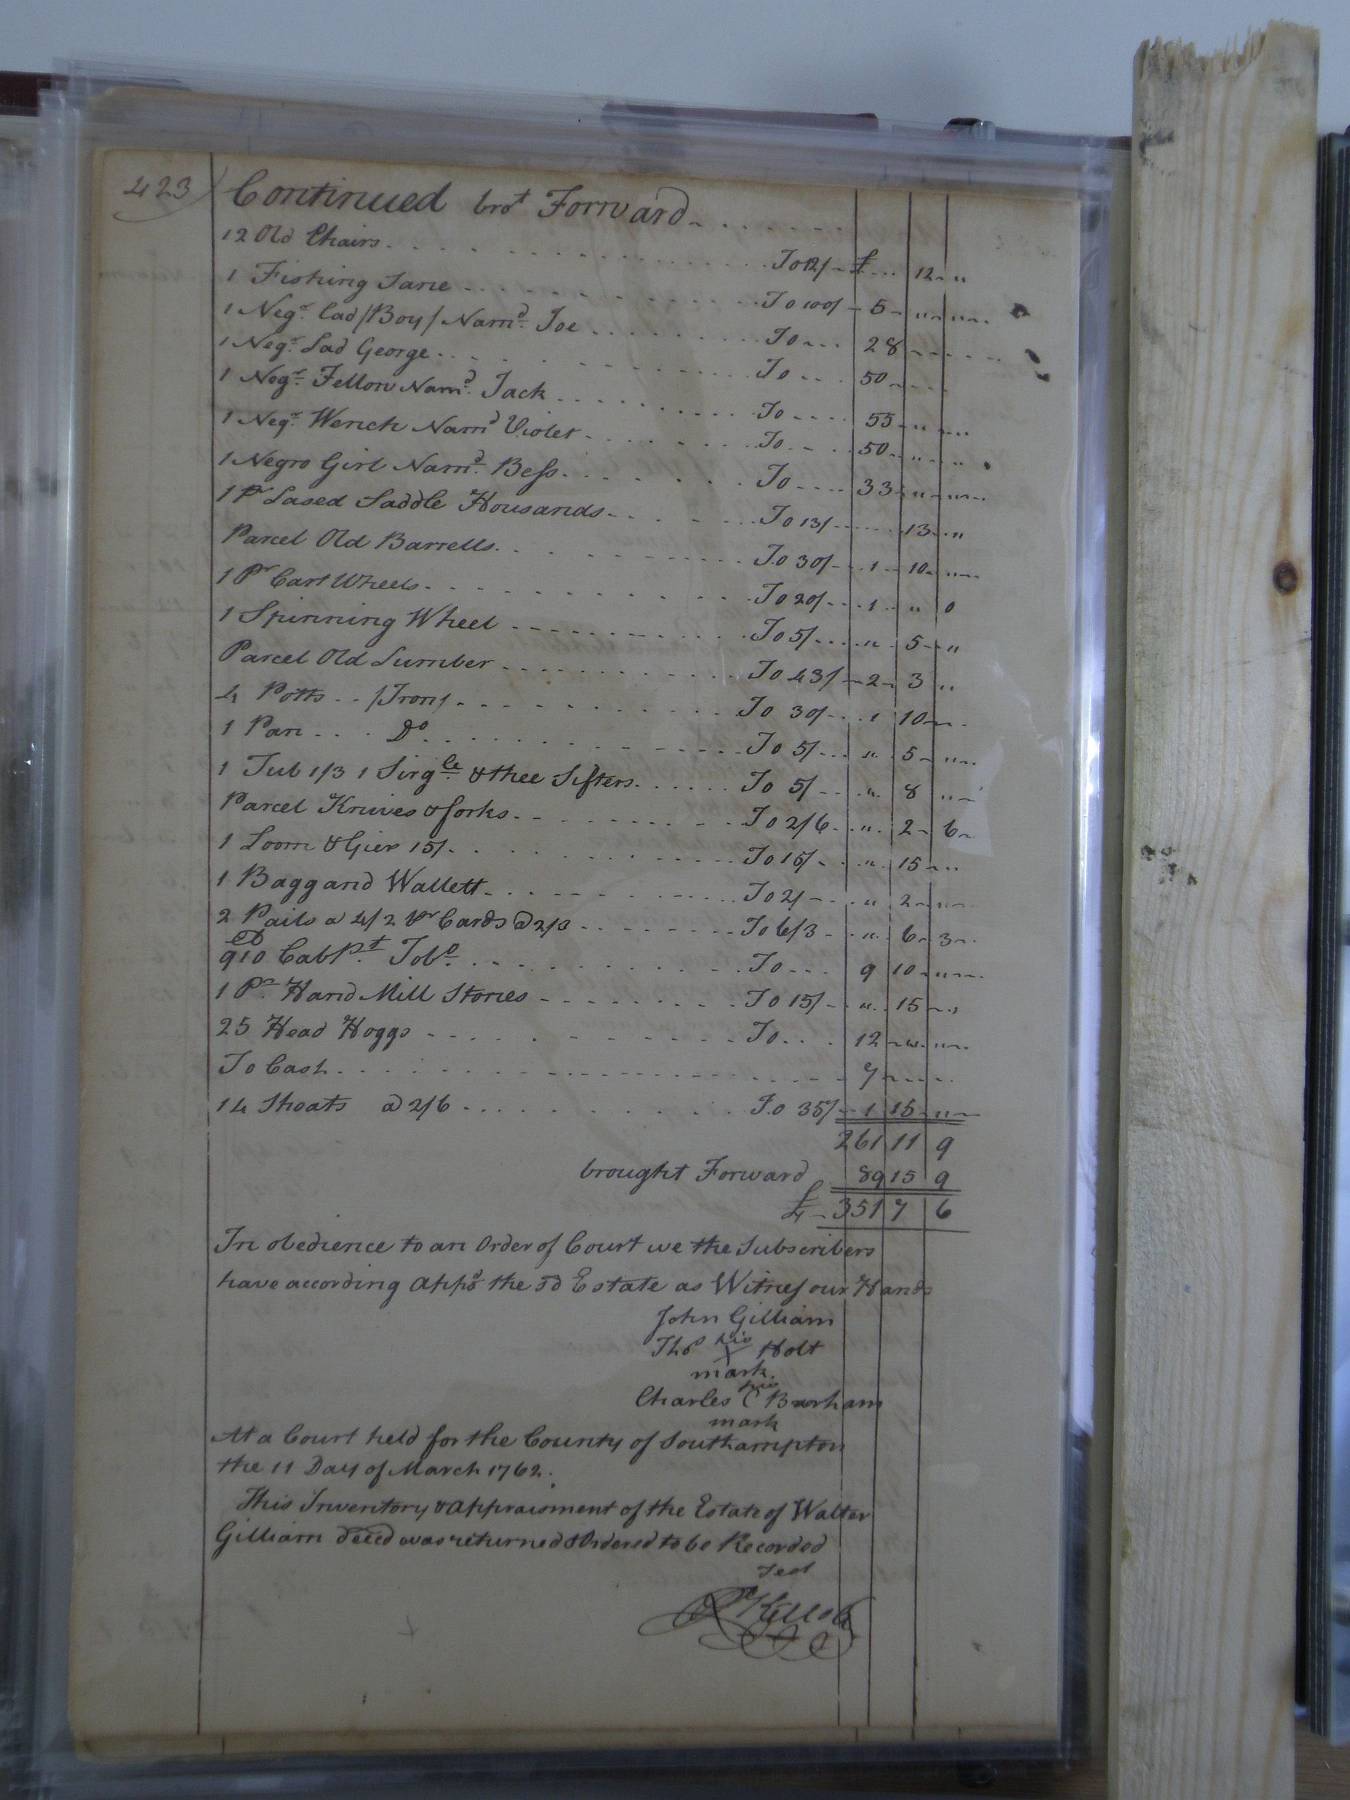 423
Continued brot Forward
12 Old Chairs To 12/ £ 12 "
1 Fishing Sane To 100/ 5 " "
1 Negr. Lad /Boy/ Namd. Joe To 28
1 Negr. Lad George To 50
1 Negr. Fellow Namd. Jack To 55 " "
1 Negr. Wench Namd Violet To 50 " "
1 Negro Girl Namd. Bess To 33 " "
1 Pr Lased Saddle Housands To 13/ 13 "
Parcel Old Barrells To 30/ 1 10 "
1 Pr Cart Wheels To 20/ 1 " 0
1 Spinning Wheel To 5/ " 5 "
Parcel Old Lumber To 43/ 2 3 "
4 Potts /Iron/ To 30/ 1 10
1 Pan Do To 5/ " 5 "
1 Tub 1/3 1 & thee Sifters To 5/ " 8 "
Parcel Knives & forks To 2/6 " 2 6
1 Loom & Gier 15/ To 15/ " 15 "
1 Bagg and Wallett To 2/ " 2 "
2 Pails a 4/ 2 pr Cards @ 2/3 To 6/3 " 6 3
910 CabPt. Tobo. To 9 10 "
1 Pr. Hand Mill Stones To 15/ " 15 "
25 Head Hoggs To 12 " "
To Cash 7
14 Shoats @ 2/6 To 35/ 1 15 "
261 11 9
brought Forward 89 15 9
£ 351 7 6
In obedience to an Order of Court we the Subscribers
have according Appd the sd Estate as Witness our Hands
John Gilliam
his
Thos X Holt
mark.
his
Charles C Barham
mark
At a Court held for the County of Southampton
the 11 Day of March 1762.
This Inventory & Appraisment of the Estate of Walter
Gilliam deced was returned & Ordered to be Recorded
Test
Rd Kello